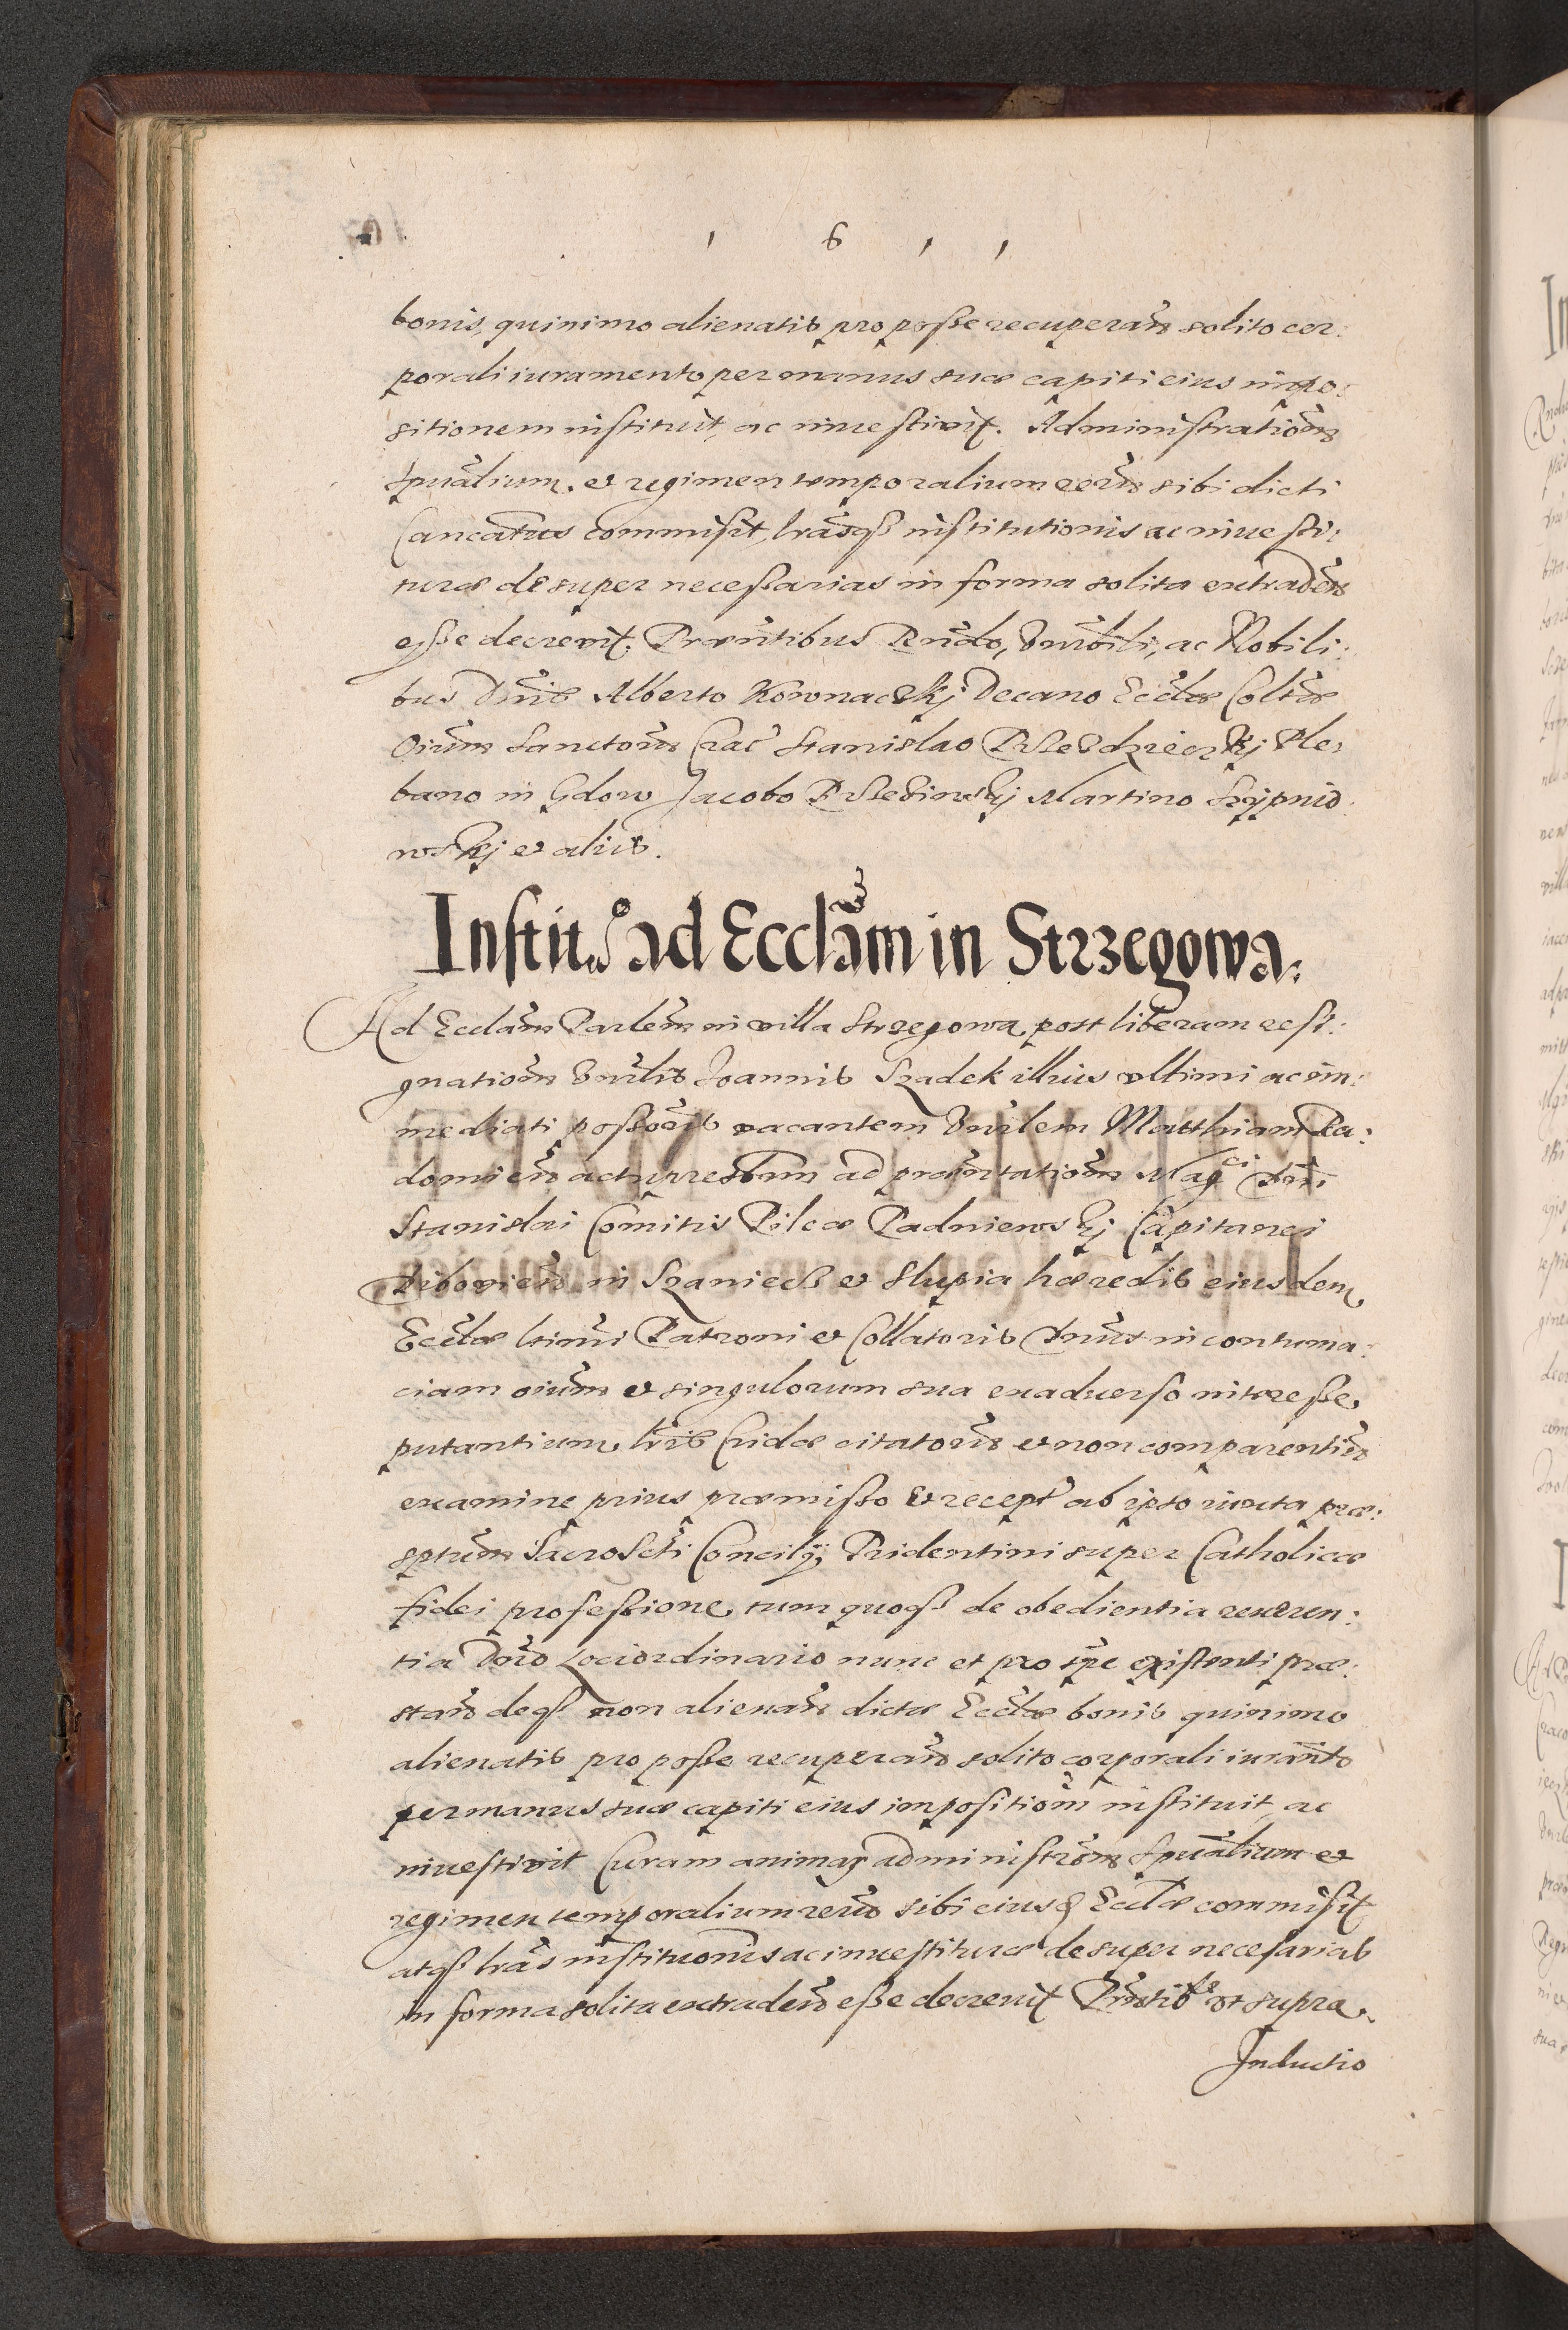 1 6 1 1
bonis, quinimo alienatis pro posße recuperan̄d solito cor:
porali iuramento per manus suæ capiti eius impo:
sitionem instituit, ac inuestivit. Administratiōem
Spūalium, et regimen temporalium rerūm sibi dicti
Cancātus commisit, lrāsq̨ institutionis ac inuesti:
turæ desuper necesßarias in forma solita extradēn
esße decrevit. Præntibus Rndo, Vnrbili, ac Nobili:
bus Dn̄is Alberto Kownaczkj Decano Eccl̄æ Col̄tæ
Oiūm Sanctorūm Crac̄ Stanislao Ple:
bano in Gdow Jacobo Martino Szypnio:
wskj et aliis.
Instit.º ad Ecclām in Strzegowa.
Ad Ecclām Parlēm in villa Strzegowa post liberam resi:
gnatiōem Vnrlis Joannis Szadek illius vltimi ac im:
mediati posßoris vacantem Vnrlem Matthiam Ra:
domień ad præntatiōem Mag.ci Dn̄i
Stanislai Comitis Pilcæ Padniewskj Capitanei
Diboviēn in Szaniecz et Slupia hæredis eiusdem
Eccl̄æ ltimi Patroni et Collatoris Dnus in contuma:
ciam oiūm et singulorum sua exaduerso interesße
putantium, lris Cridæ citatorūm et non comparentiūm
examine prius præmisßo et recept̄ ab ipso iuxta præ:
sptūm Sacroscti Concilij Tridentini super Catholicæ
fidei profesßione, tum quoq̨ de obedientia reveren:
tia Dno Loci ordinario nunc et pro tpe existenti præ:
stan̄d deq̨ non alienan̄d dictæ Eccl̄æ bonis quinimo
alienatis pro posße recuperan̄d solito corporali iuramto
per manus suæ capiti eius impositiōm instituit, ac
inuestivit Curam animar̄ administrōem Spūalium et
regimen temporalium rerūm sibi eiusd̄ Eccl̄æ commisit
atq̨ lrās institutionis ac inuestituræ desuper necesarias
in forma solita extradēn esße decrevit Prntib9 vt supra.
Inductio